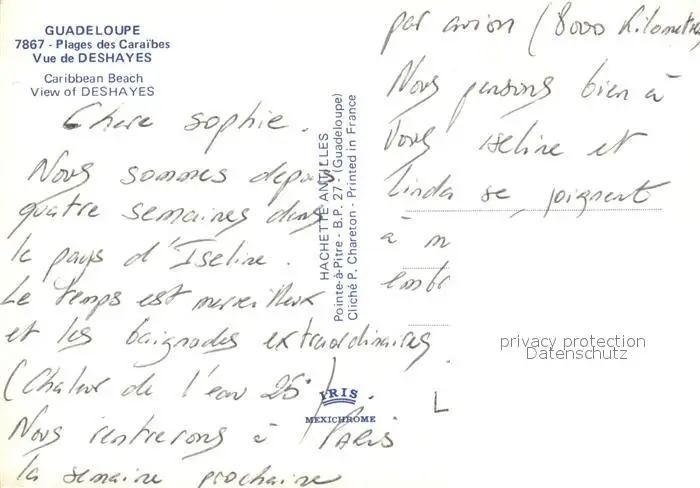 GUADELOUPE
7867 - Plages des Caraïbes
Vue de DESHAYES
Caribbean Beach
View of DESHAYES
Chere sophie.
Nous sommes depuis
quatre semaines dans
le pays d'Iseline.
Le temps est merveilleux
et les baignades extraordinaires
(Chaleur de l'eau 26°).
Nous rentrerons à PARIS
la semaine prochaine
par avion (8000 kilometres
Nous pensons bien à
Vous Iseline et
Linda se joignent
à m
embr
L
HACHETTE ANTILLES
Pointe-à-Pitre - B.P. 27 - (Guadeloupe)
Cliché P. Chareton - Printed in France
IRIS
MEXICHROME
privacy protection
Datenschutz